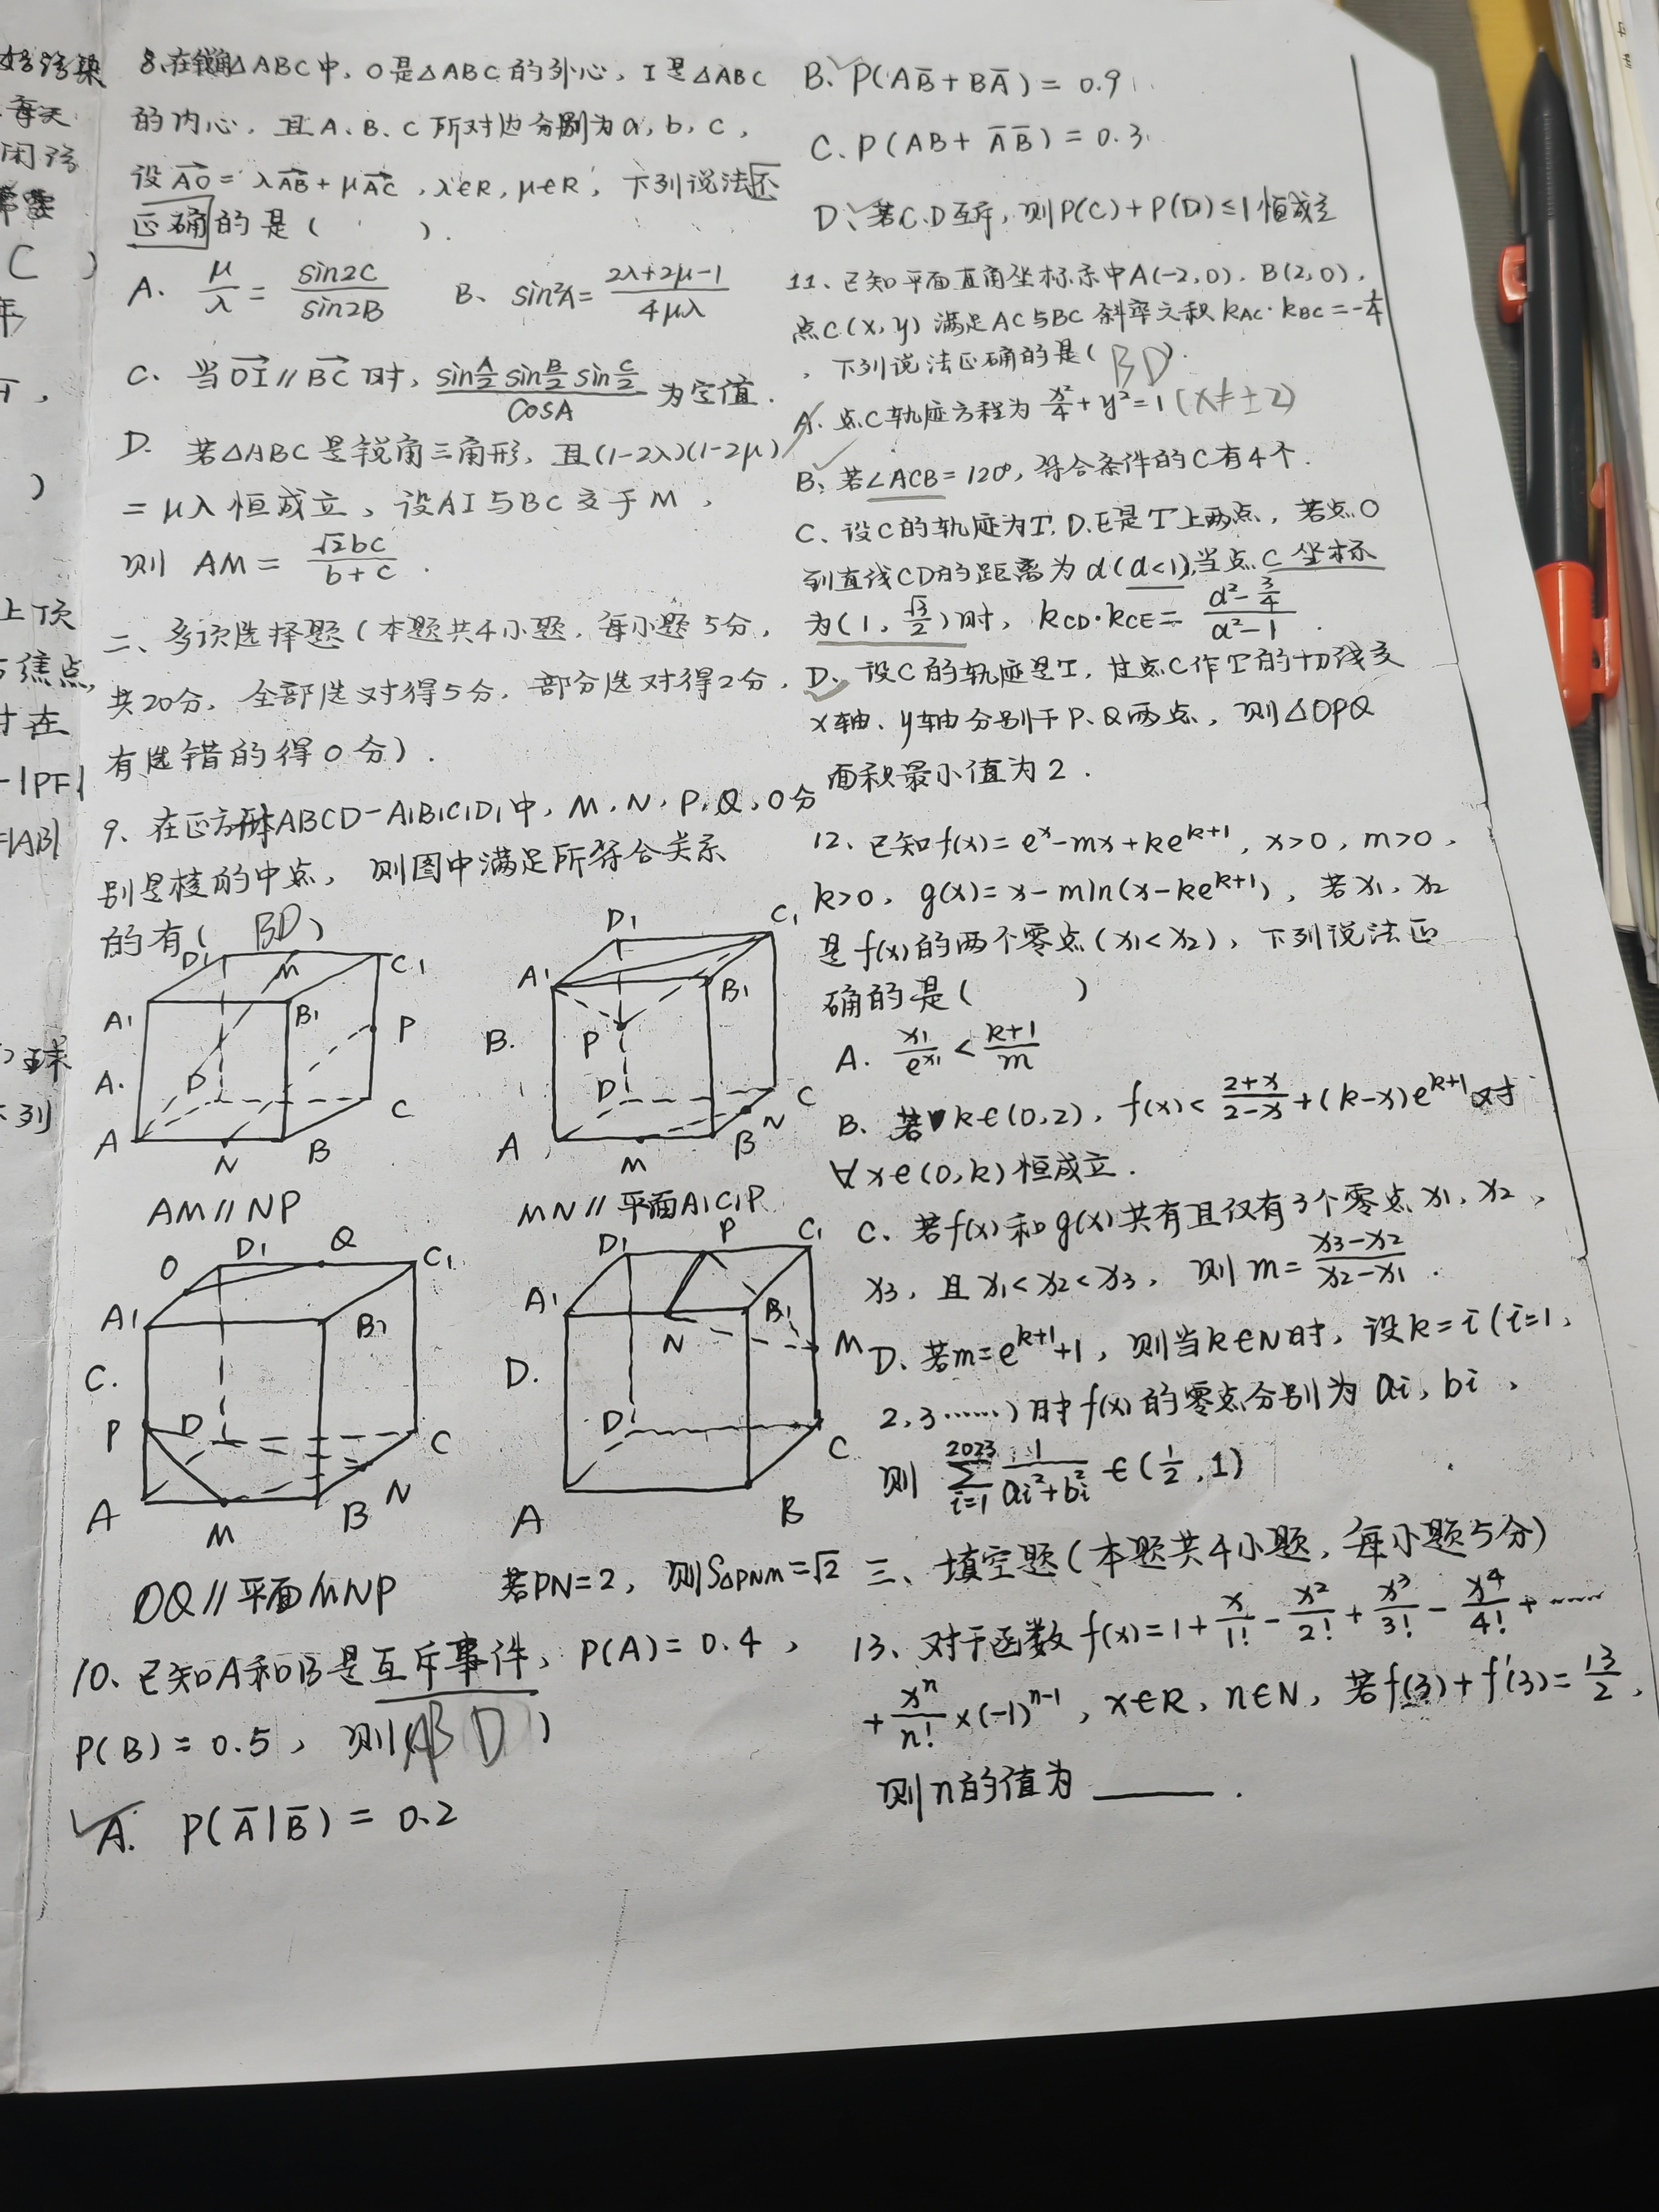 好污染
每天
闭污
C )
年
)
上顶
焦点,
寸在
-|PF|
=|AB|
球
列
8.在锐角△ABC中, O是△ABC的外心, I是△ABC
的内心, 且A、B、C所对边分别为a, b, c,
设AO→=λAB→+μAC→, λ∈R, μ∈R, 下列说法
正确的是( ).
A. μ/λ = sin2C/sin2B B、sin²A= (2λ+2μ-1)/(4μλ)
C. 当OI→∥BC→时, (sin A/2 sin B/2 sin C/2)/cosA 为定值.
D. 若△ABC是锐角三角形, 且(1-2λ)(1-2μ)
=μλ恒成立, 设AI与BC交于M,
则 AM= √2bc/(b+c).
二、多项选择题(本题共4小题, 每小题5分,
共20分, 全部选对得5分, 部分选对得2分,
有选错的得0分).
9、在正方体ABCD-A1B1C1D1中, M, N, P, Q, O分
别是棱的中点, 则图中满足所符合关系
的有( BD )
D1 M C1
A1 B1
P
A. D
C
A N B
AM∥NP
D1 C1
A1 B1
B. P
D C
N
A M B
MN∥平面A1C1P
O D1 Q C1
A1 B1
C.
P D C
A M B N
OQ∥平面MNP
D1 P C1
A1 B1
N M
D.
D C
A B
若PN=2, 则S△PNM=√2
10、已知A和B是互斥事件, P(A)=0.4,
P(B)=0.5, 则(ABD)
A. P(A̅|B̅)=0.2
B、P(AB̅+BA̅)=0.9
C、P(AB+A̅B̅)=0.3
D、若C、D互斥, 则P(C)+P(D)≤1恒成立
11、已知平面直角坐标系中A(-2,0), B(2,0),
点C(x,y)满足AC与BC斜率之积kAC·kBC=-1/4
, 下列说法正确的是( BD ).
A. 点C轨迹方程为x²/4+y²=1 (x≠±2)
B、若∠ACB=120°, 符合条件的C有4个.
C、设C的轨迹为T, D、E是T上两点, 若点O
到直线CD的距离为d(d<1), 当点C坐标
为(1, √3/2)时, kCD·kCE= (d²-3/4)/(d²-1).
D、设C的轨迹是T, 过点C作T的切线交
x轴、y轴分别于P、Q两点, 则△OPQ
面积最小值为2.
12、已知f(x)=e^x-mx+ke^(k+1), x>0, m>0,
k>0, g(x)=x-mln(x-ke^(k+1)), 若x1, x2
是f(x)的两个零点(x1<x2), 下列说法正
确的是( )
A. x1/e^x1 < (k+1)/m
B. 若k∈(0,2), f(x)< (2+x)/(2-x) +(k-x)e^(k+1)对
∀x∈(0,k)恒成立.
C. 若f(x)和g(x)共有且仅有3个零点x1, x2,
x3, 且x1<x2<x3, 则m= (x3-x2)/(x2-x1).
D、若m=e^(k+1)+1, 则当k∈N时, 设k=i(i=1,
2,3……)时f(x)的零点分别为ai, bi,
则 ∑(i=1→2023) 1/(ai²+bi²) ∈(1/2, 1)
三、填空题(本题共4小题, 每小题5分)
13、对于函数f(x)=1+x/1!-x²/2!+x³/3!-x⁴/4!+……
+x^n/n!×(-1)^(n-1), x∈R, n∈N, 若f(3)+f'(3)=13/2,
则n的值为______.